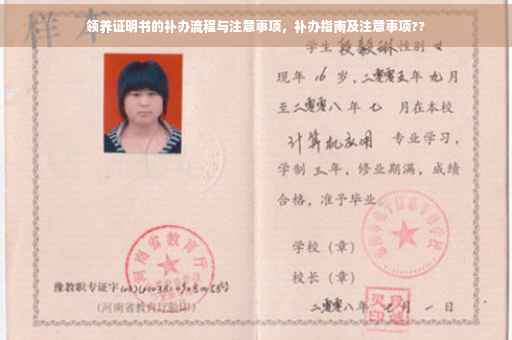 领养证明书的补办流程与注意事项，补办指南及注意事项??
样本
学生 段毅琳 性别 女
现年 16 岁，二零零五年 九月
至二零零八年 七 月在本校
计算机应用 专业学习，
学制 三 年，修业期满，成绩
合格，准予毕业
学校（章）
校长（章）
二零零八年 七 月 一 日
河南省教育厅
豫教职专证字
（河南省教育厅验印）